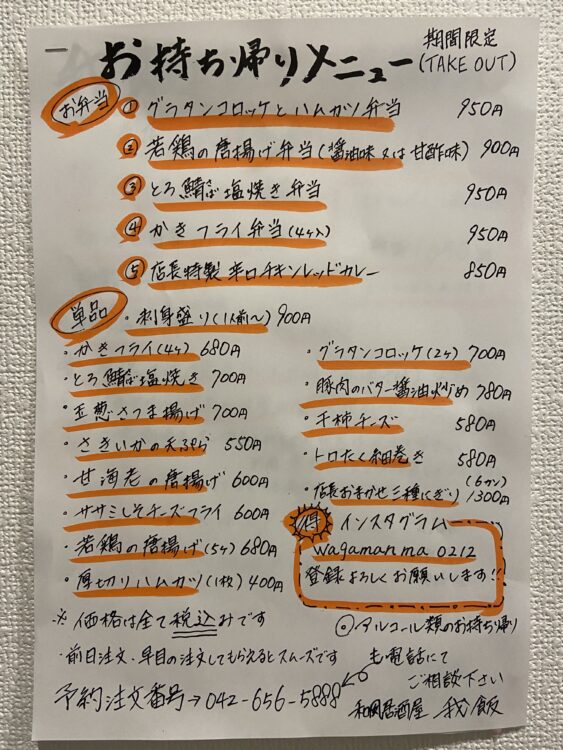 お持ち帰りメニュー
期間限定
(TAKE OUT)
お弁当
① グラタンコロッケとハムカツ弁当 950円
② 若鶏の唐揚げ弁当(醤油味又は甘酢味) 900円
③ とろ鯖塩焼き弁当 950円
④ かきフライ弁当(4ヶ入) 950円
⑤ 店長特製 辛口チキンレッドカレー 850円
単品
・刺身盛り(1人前〜) 900円
・かきフライ(4ヶ) 680円
・とろ鯖塩焼き 700円
・玉葱さつま揚げ 700円
・さきいかの天ぷら 550円
・甘海老の唐揚げ 600円
・ササミしそチーズフライ 600円
・若鶏の唐揚げ(5ヶ) 680円
・厚切りハムカツ(1枚) 400円
・グラタンコロッケ(2ヶ) 700円
・豚肉のバター醤油炒め 780円
・干柿チーズ 580円
・トロたく細巻き 580円
・店長おまかせ三種にぎり(6カン) 1300円
得 インスタグラム
wagamanma 0212
登録よろしくお願いします!!
※価格は全て税込みです
・前日注文・早目の注文してもらえるとスムーズです
予約注文番号→042-656-5888
◎アルコール類のお持ち帰り
も電話にて
ご相談下さい
和風居酒屋 我飯